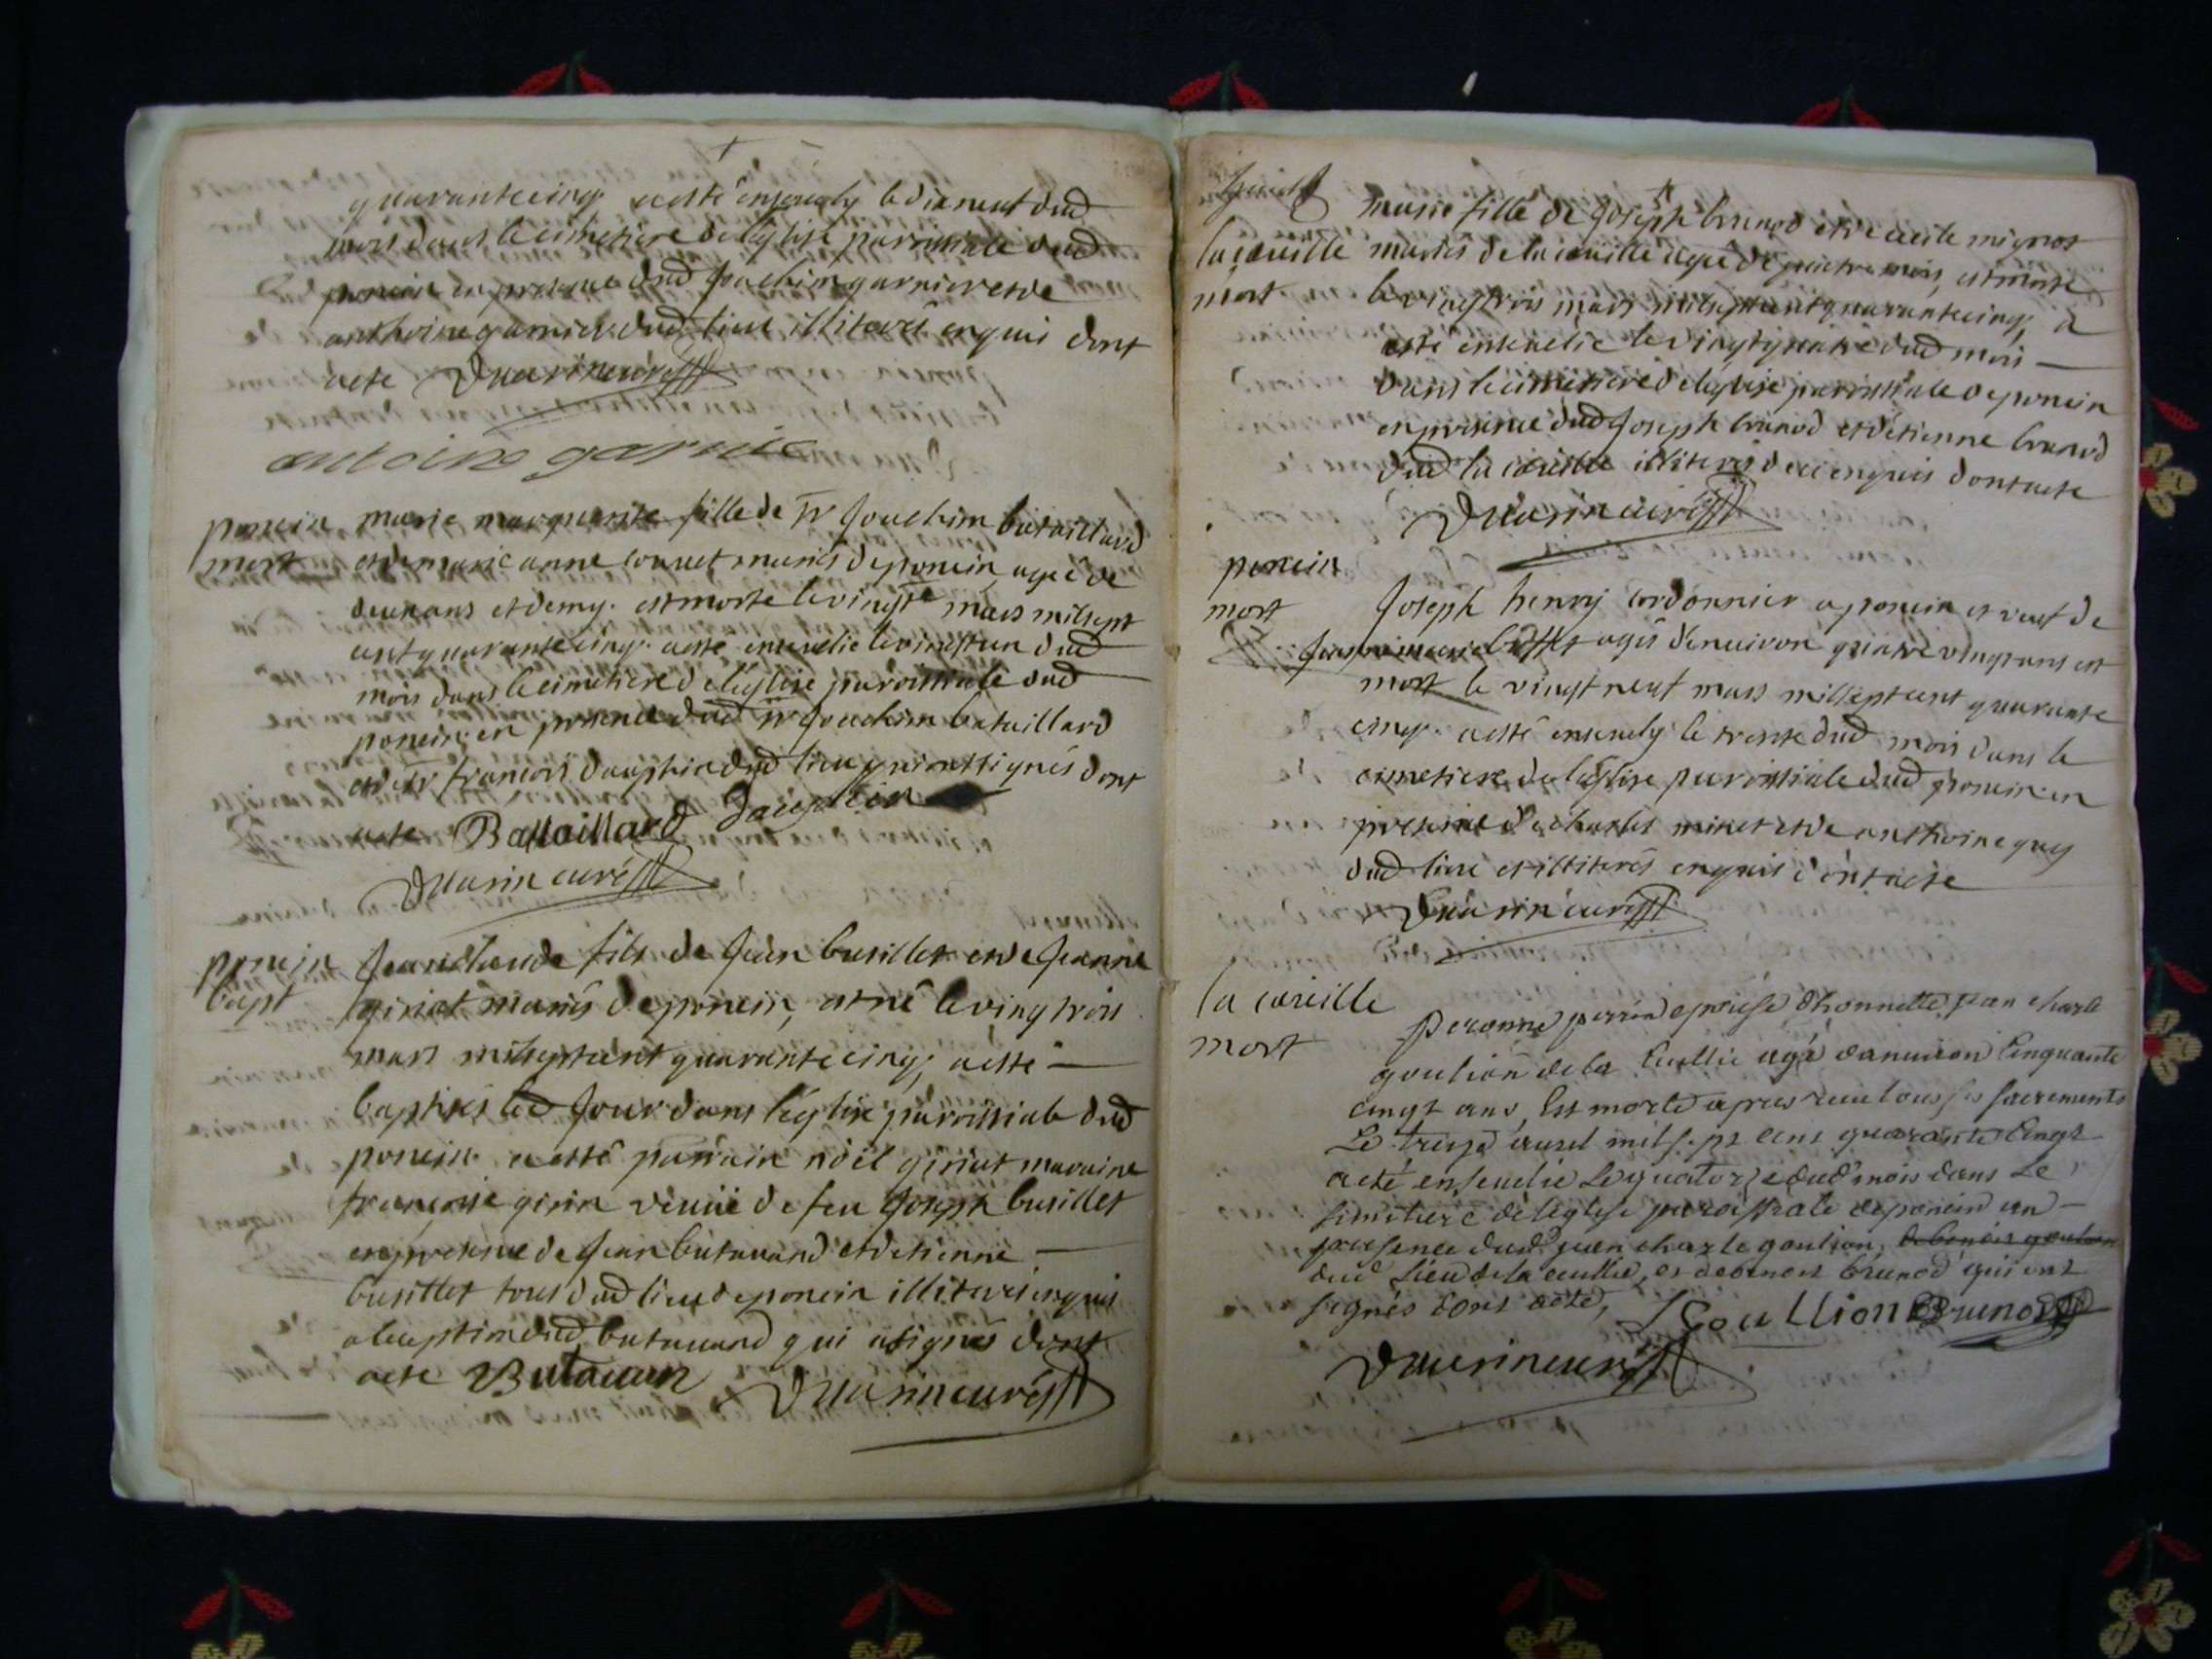 quarantecinq. aesté ensevely le dixneuf dud
mois dans le cimetiere de leglise parroissiale dud
poncin en presence dud Joachim garnier et de
anthoine garnier dud lieu illiterés enquis dont
acte Duvarin curé
antoine garnie
poncin marie marguerite fille de Sr Joachim bataillard
mort et de marie anne couuet mariés de poncin, agée de
deux ans et demy. est morte le vingt mars milsept
cent quarantecinq. aesté ensevelie le vingt un dud
mois dans le cimetiere de leglise parroissiale dud
poncin. en presence dud Sr Joachim bataillard
et de Sr francois dauphin dud lieu qui ont signés dont
acte Bataillard Dauphin
Duvarin curé
poncin Jeanclaude fils de Jean busillet et de Jeanne
bapt giriat mariés de poncin, est né le vingt trois
mars milseptcent quarantecinq, aesté
baptisés led Jour dans leglise parroissiale dud
poncin. a esté parrain noël giriat maraine
francoise girin veuüe de feu Joseph busillet
en presence de Jean butavand et detienne
busillet tous dud lieu de poncin illiterés enquis
a lexception dud butavand qui a signés dont
acte Butavan Duvarin curé
la cueille marie fille de Joseph brunod et de cecile mignot
mort mariés de la cueille agée de quatre mois, est morte
le vingttrois mars milseptcentquarantecinq, a
esté ensevelie le vingtquatre dud mois
dans le cimetiere de leglise parroissiale de poncin
en presence dud Joseph brunod et detienne brunod
dud la cueille illiterés de ce enquis dont acte
Duvarin curé
poncin
mort Joseph henry cordonnier a poncin et veuf de
agés denviron quatre vingt ans est
mort le vingt neuf mars millseptcent quarante
cinq. aesté ensevely le trente dud mois dans le
cimetiere de leglise parroissiale dud poncin. en
presence de charles minet et de anthoine guy
dud lieu et illiterés enquis dont acte
Duvarin curé
la cueille
mort peronne perrin epouse dhonnette jean charle
goulion de la Cuellie agé danviron Cinquante
cinqt ans, Est morte apres reeu tous ses sacrements
Le treize avril mil sept cens quarante Cinqt
aeté ensevelie Le quatorze dud mois dans Le
simitiere de leglese paroissiale de poncin en
presence dud jean charle goulion, de benois goulion
dud Lieu de la cuellie, et de benoit brunod qui ont
segnés dont acte, JGoullion Brunod
Duvarin curé